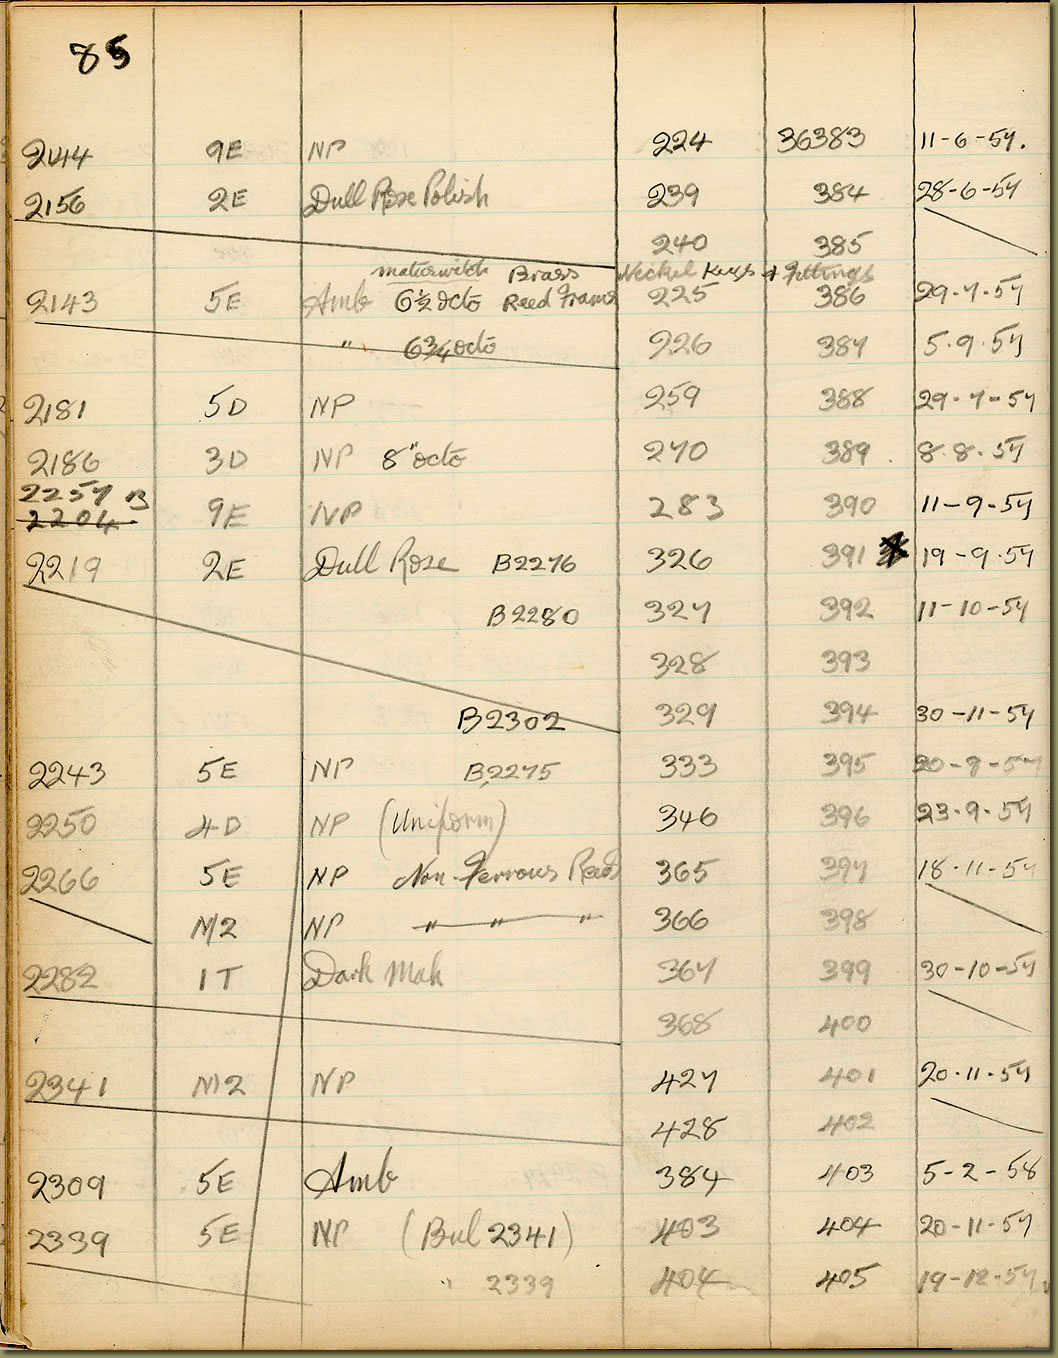 85
2044 9E NP 224 36383 11-6-57.
2156 2E Dull Rose Polish 239 384 28-6-57
240 385
Brass Neckel Keys & Fittings
2143 5E Amb 6½ Octo Reed Frams 225 386 29-7-57
" 6¾ octo 226 387 5.9.57
2181 5D NP 259 388 29-7-57
2186 3D NP 8" octo 270 389 8.8.57
2257 B
2204 9E NP 283 390 11-9-57
2219 2E Dull Rose B2276 326 391 19-9-57
B2280 327 392 11-10-57
328 393
B2302 329 394 30-11-57
2243 5E NP B2275 333 395 20-9-57
2250 4D NP (Uniform) 346 396 23.9.57
2266 5E NP Non-Ferrous Reeds 365 397 18.11-57
M2 NP " " " 366 398
2282 1T Dark Mah 367 399 30-10-57
368 400
2341 M2 NP 427 401 20.11-57
428 402
2309 5E Amb 384 403 5-2-58
2339 5E NP (Bul 2341) 403 404 20-11-57
" 2339 404 405 19-12-57.